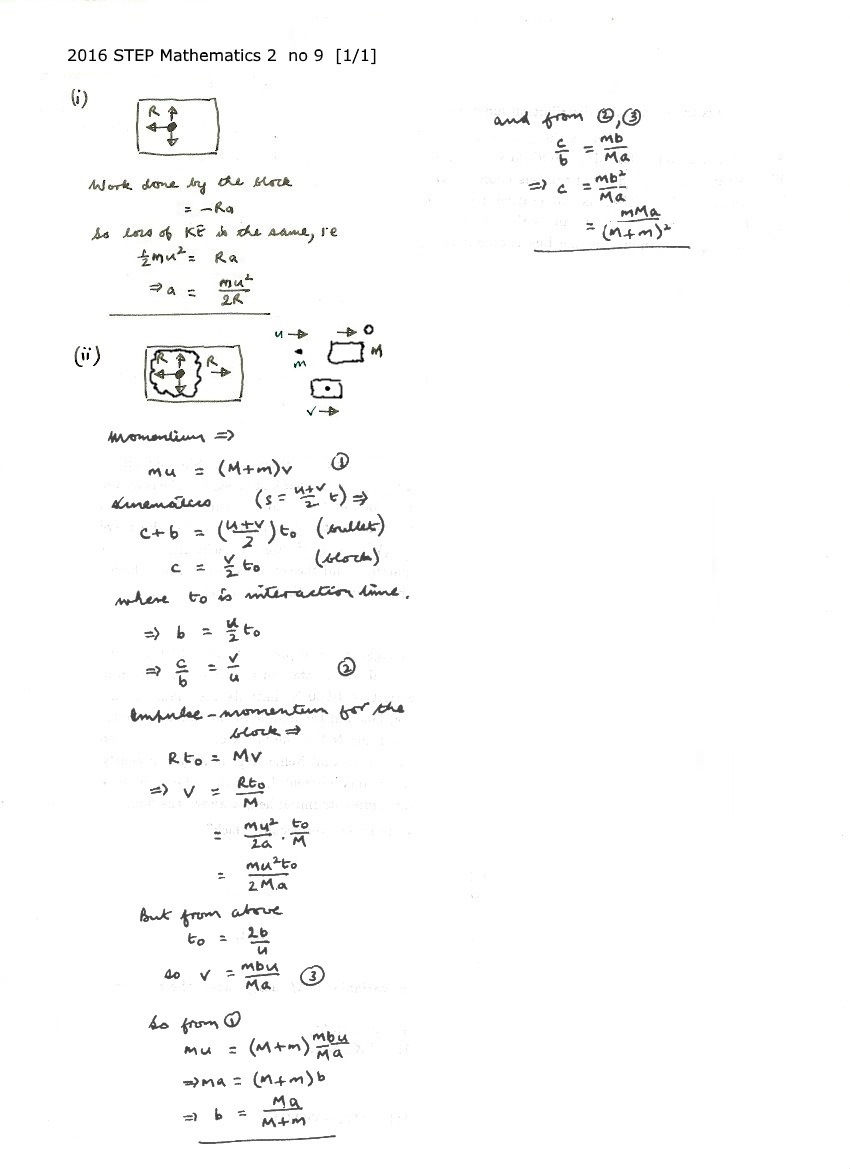 2016 STEP Mathematics 2 no 9 [1/1]
(i)
R
Work done by the block
= -Ra
So loss of KE is the same, ie
½mu² = Ra
⇒ a = mu²/2R
(ii)
R R
u → → 0
m M
v →
Momentum ⇒
mu = (M+m)v ①
Kinematics (s = (u+v)/2 t) ⇒
c+b = ((u+v)/2)t₀ (bullet)
c = v/2 t₀ (block)
where t₀ is interaction time.
⇒ b = u/2 t₀
⇒ c/b = v/u ②
Impulse-momentum for the
block ⇒
Rt₀ = Mv
⇒ v = Rt₀/M
= mu²/2a · t₀/M
= mu²t₀/2Ma
But from above
t₀ = 2b/u
so v = mbu/Ma ③
So from ①
mu = (M+m) mbu/Ma
⇒ Ma = (M+m)b
⇒ b = Ma/M+m
and from ②,③
c/b = mb/Ma
⇒ c = mb²/Ma
= mMa/(M+m)²